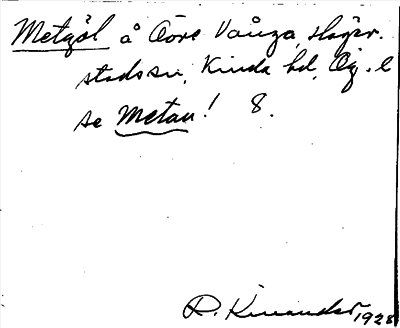 Metgöl å Övre Vånga, Hägerstadssn, Kinda hd, Ög. l
se Metau! 8.
R. Kinander 1928